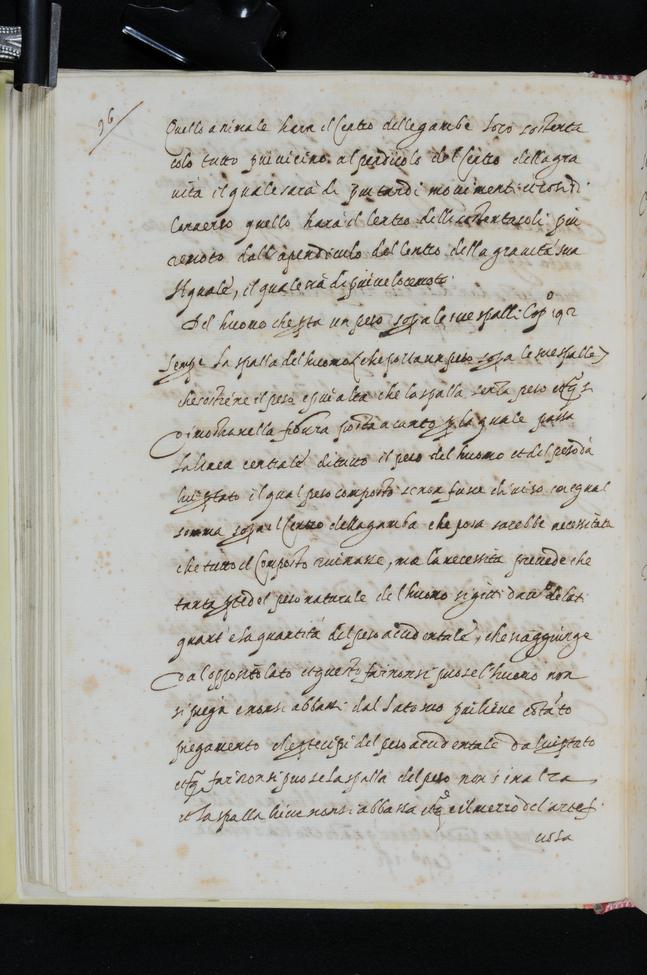 96
Quello animale hara il centro delle gambe suo sostenta
colo tanto piu vicino al perdicolo del centro della gra
uità il quale sarà di piu tardi mouimenti et cosi di
Conuerso quello harà il centro delli sostentacoli piu
remoto dall'apendiculo del centro della grauità sua
il quale, il quale sia di piu veloce moto.
Del huomo che porta un peso sopa le sue spalle Capº 192
Sempre la spalla del huomo (che porta un peso sopa le sue spalle)
che sostiene il peso é piu alta che la spalla senza peso et qº si
dimostra nella figura posta a canto p la quale passa
la linea centrale di tutto il peso del huomo et del peso da
lui portato il qual peso composto se non fusse diuiso con egual
somma sopa il Centro della gamba che posa sarebbe necessitato
che tutto il composto ruinasse, ma la necessita prouede che
tanta pte del peso naturale del huomo si gitti da uº de lati
quant'é la quantità del peso accidentale, che si aggiunge
dal opposito lato et questo far non si puo se l'huomo non
si piega e non si abbassi dal lato suo piu lieue con tãto
piegamento che ptecipi del peso accidentale da lui portato
et qº far non si puo se la spalla del peso non s'inalza
et la spalla lieue non si abbassa et qº e il mezzo che l'artefi
ciosa